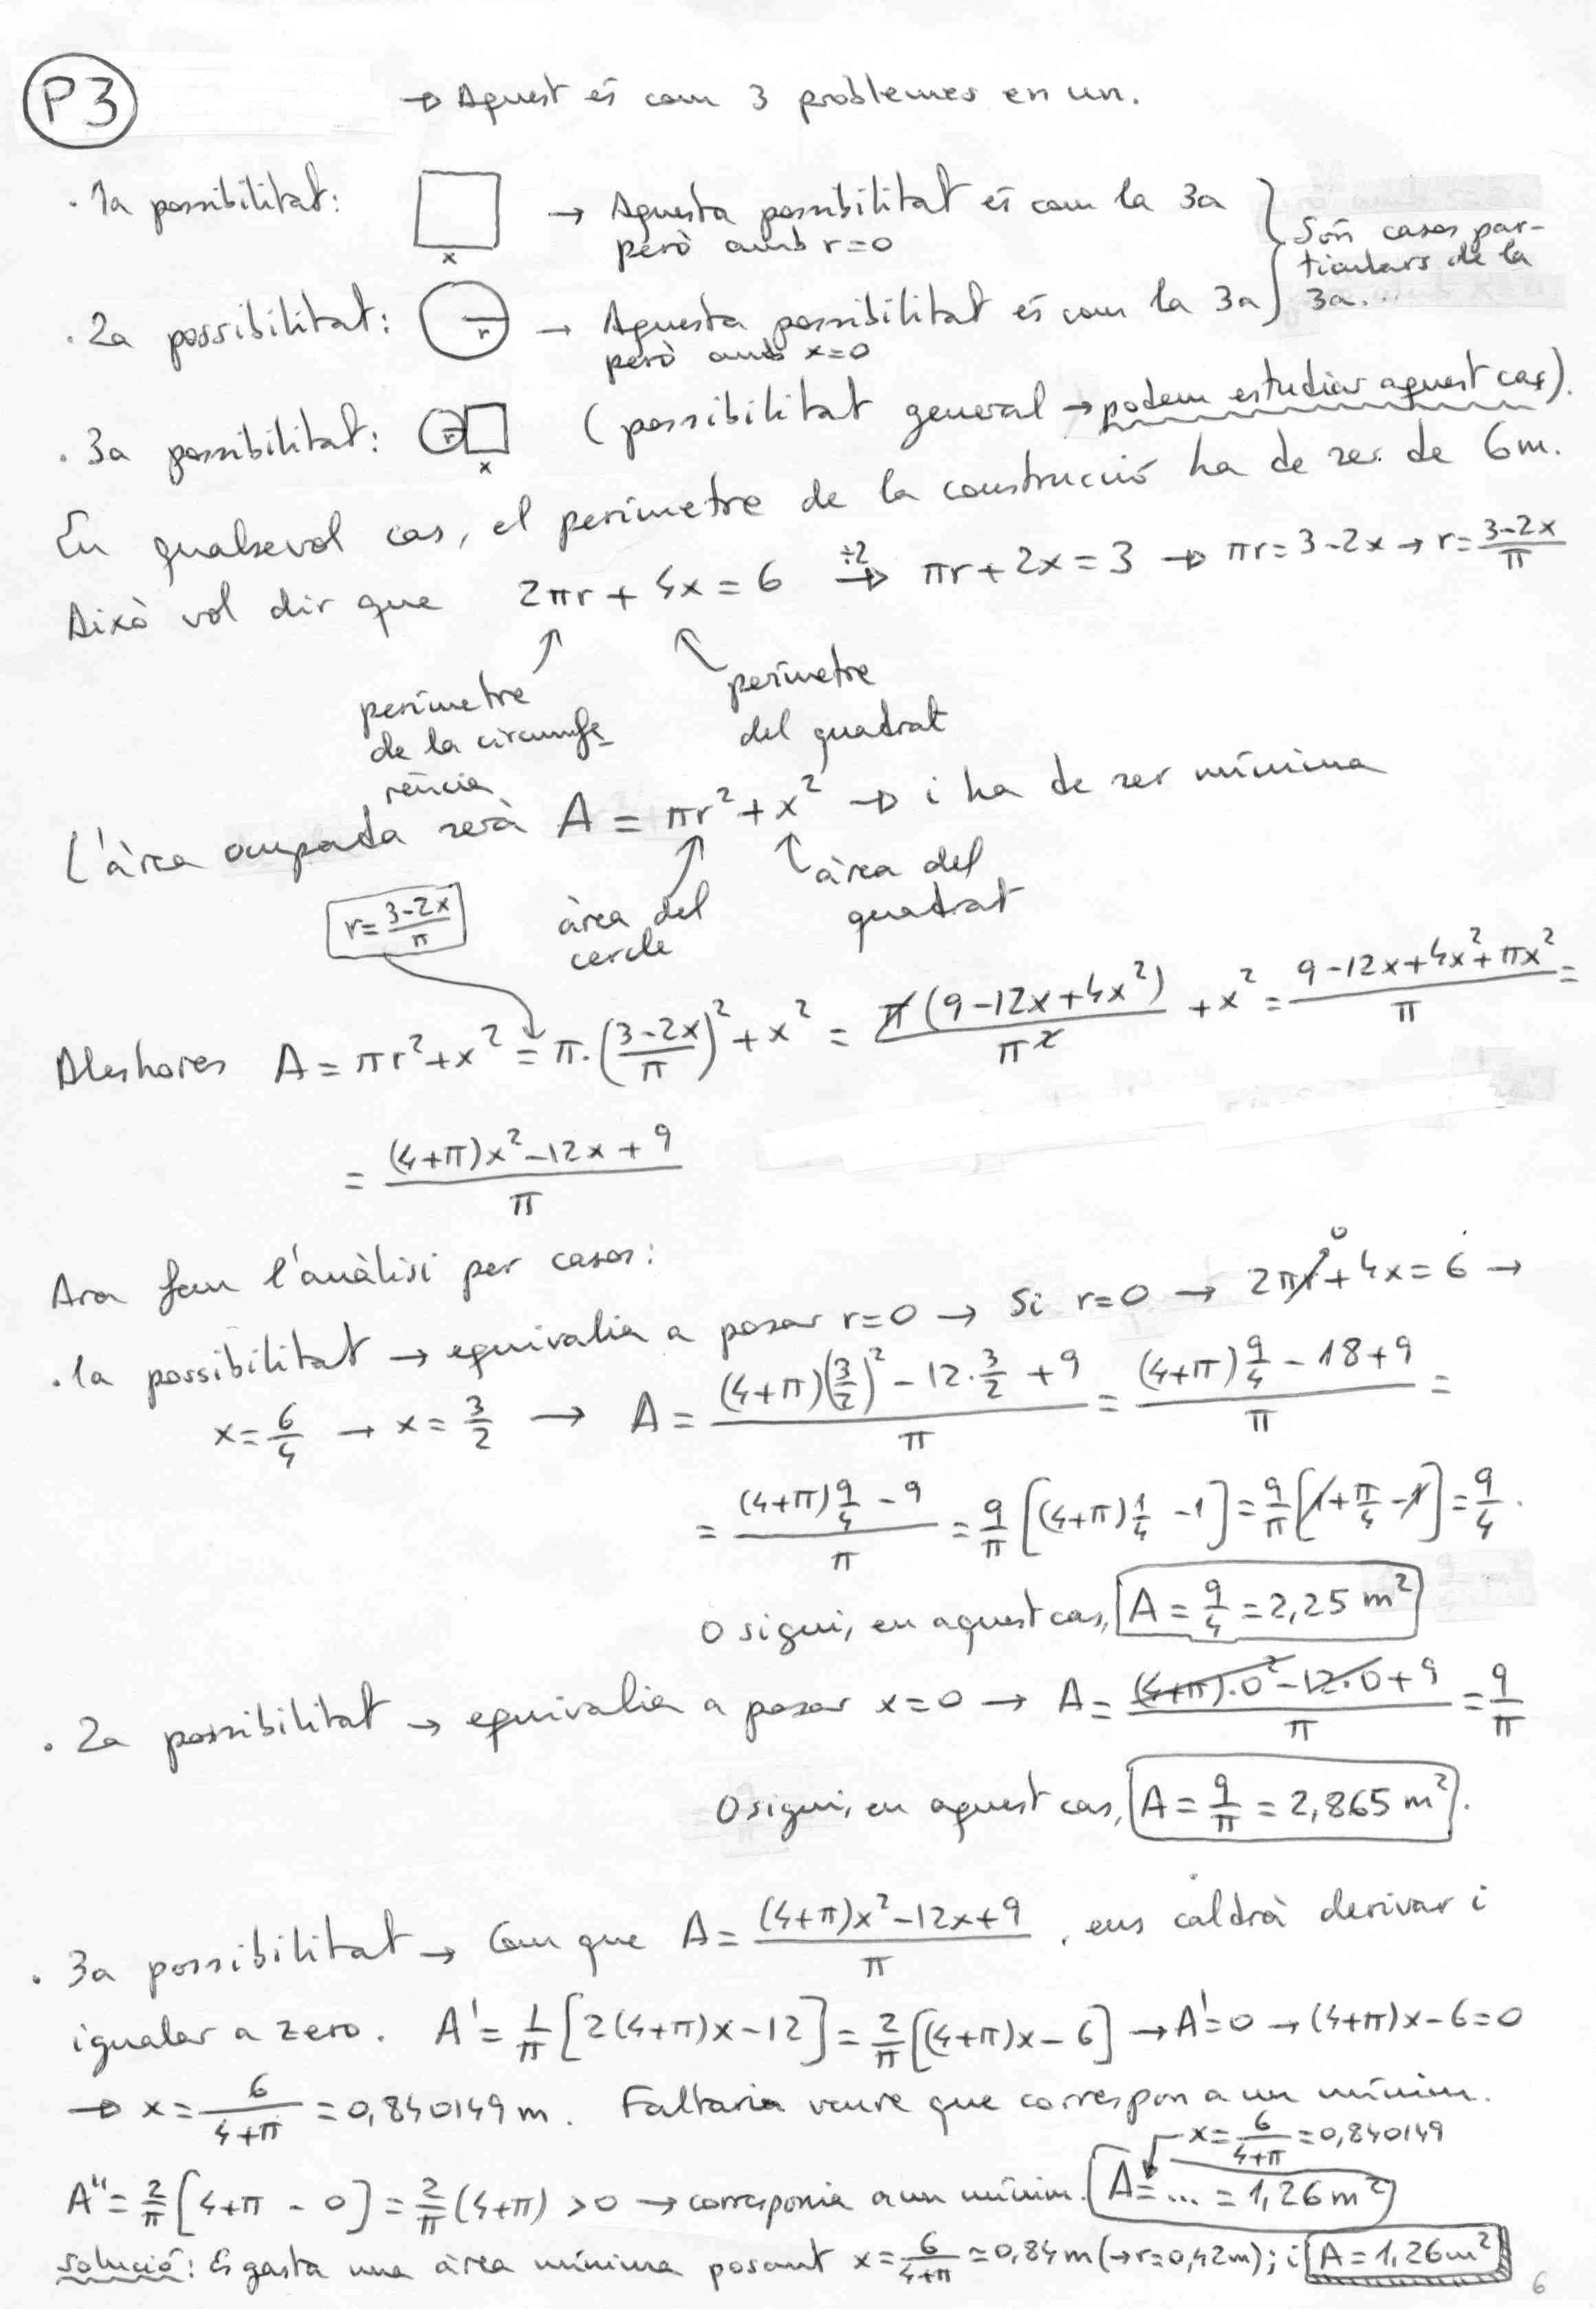 P3
→ Aquest és com 3 problemes en un.
· 1a possibilitat: x → Aquesta possibilitat és com la 3a
però amb r=0
Són casos par-
ticulars de la
3a...
· 2a possibilitat: r → Aquesta possibilitat és com la 3a
però amb x=0
· 3a possibilitat: r x (possibilitat general → podem estudiar aquest cas).
En qualsevol cas, el perímetre de la construcció ha de ser de 6m.
Això vol dir que 2πr + 4x = 6 →(÷2) πr + 2x = 3 → πr = 3-2x → r = (3-2x)/π
perímetre
de la circumfe-
rència
perímetre
del quadrat
L'àrea ocupada serà A = πr² + x² → i ha de ser mínima
r = (3-2x)/π
àrea del
cercle
àrea del
quadrat
Aleshores A = πr² + x² = π·((3-2x)/π)² + x² = π(9-12x+4x²)/π² + x² = (9-12x+4x²+πx²)/π =
= ((4+π)x²-12x+9)/π
Ara fem l'anàlisi per casos:
· 1a possibilitat → equivalia a posar r=0 → Si r=0 → 2πr⁰ + 4x = 6 →
x = 6/4 → x = 3/2 → A = ((4+π)(3/2)² - 12·3/2 + 9)/π = ((4+π)9/4 - 18 + 9)/π =
= ((4+π)9/4 - 9)/π = 9/π [(4+π)1/4 - 1] = 9/π [1 + π/4 - 1] = 9/4.
O sigui, en aquest cas, A = 9/4 = 2,25 m²
· 2a possibilitat → equivalia a posar x=0 → A = ((4+π)·0² - 12·0 + 9)/π = 9/π
O sigui, en aquest cas, A = 9/π = 2,865 m².
· 3a possibilitat → Com que A = ((4+π)x²-12x+9)/π, ens caldrà derivar i
igualar a zero. A' = 1/π [2(4+π)x-12] = 2/π [(4+π)x-6] → A'=0 → (4+π)x-6=0
→ x = 6/(4+π) = 0,840149 m. Faltaria veure que correspon a un mínim.
x = 6/(4+π) = 0,840149
A'' = 2/π [4+π - 0] = 2/π (4+π) > 0 → corresponia a un mínim. A = ... = 1,26 m²
solució: Es gasta una àrea mínima posant x = 6/(4+π) ≃ 0,84 m (→ r=0,42m); i A = 1,26 m²
6